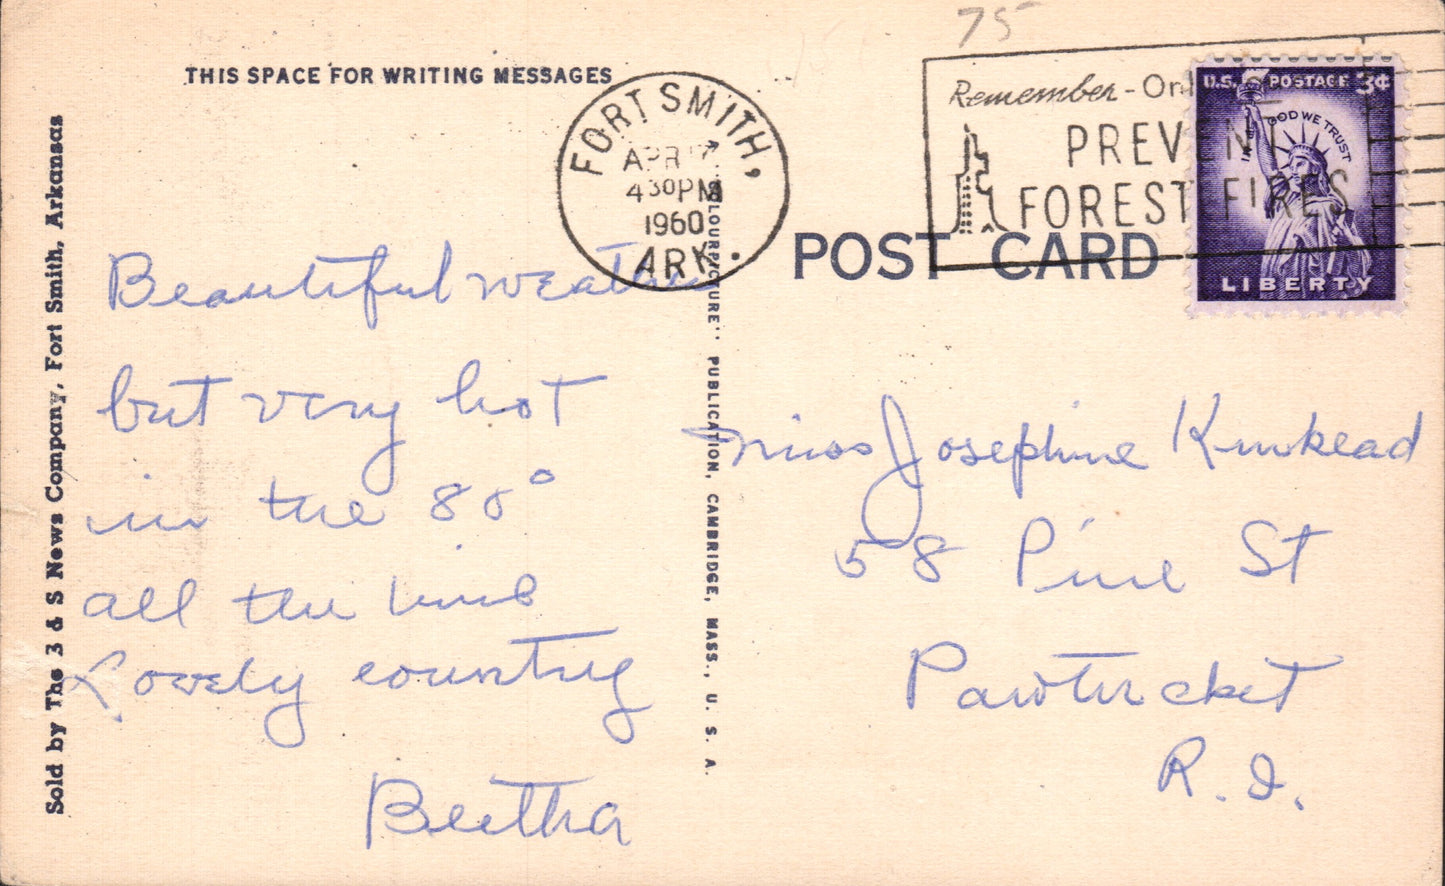 75
THIS SPACE FOR WRITING MESSAGES
FORT SMITH,
APR
4 30 PM
1960
ARK.
Remember - Only
PREVENT
FOREST FIRES
U.S. POSTAGE 3¢
IN GOD WE TRUST
LIBERTY
POST CARD
Sold by The 3 & S News Company, Fort Smith, Arkansas
COLOURPICTURE" PUBLICATION, CAMBRIDGE, MASS., U. S. A.
Beautiful weather
but very hot
in the 80°
all the time
Lovely country
Bertha
Miss Josephine Kinkead
58 Pine St
Pawtucket
R. I.